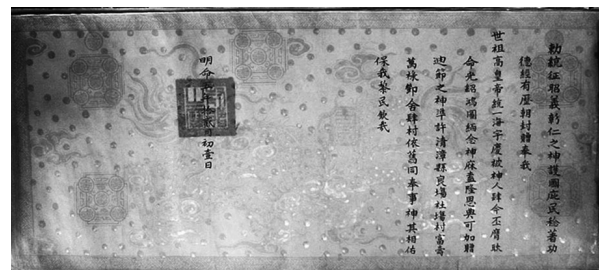 勅統征昭義彰仁之神護國庇民稔著功
德經有歷朝封贈奉我
世祖高皇帝統一海宇慶被神人肆今丕膺耿
命光紹鴻圖緬念神庥盍隆恩典可加贈
迪節之神準許清漳縣良場社場村富壽
萬祿舍肆村依舊同奉事神其相佑
保我黎民欽哉
明命年月初壹日